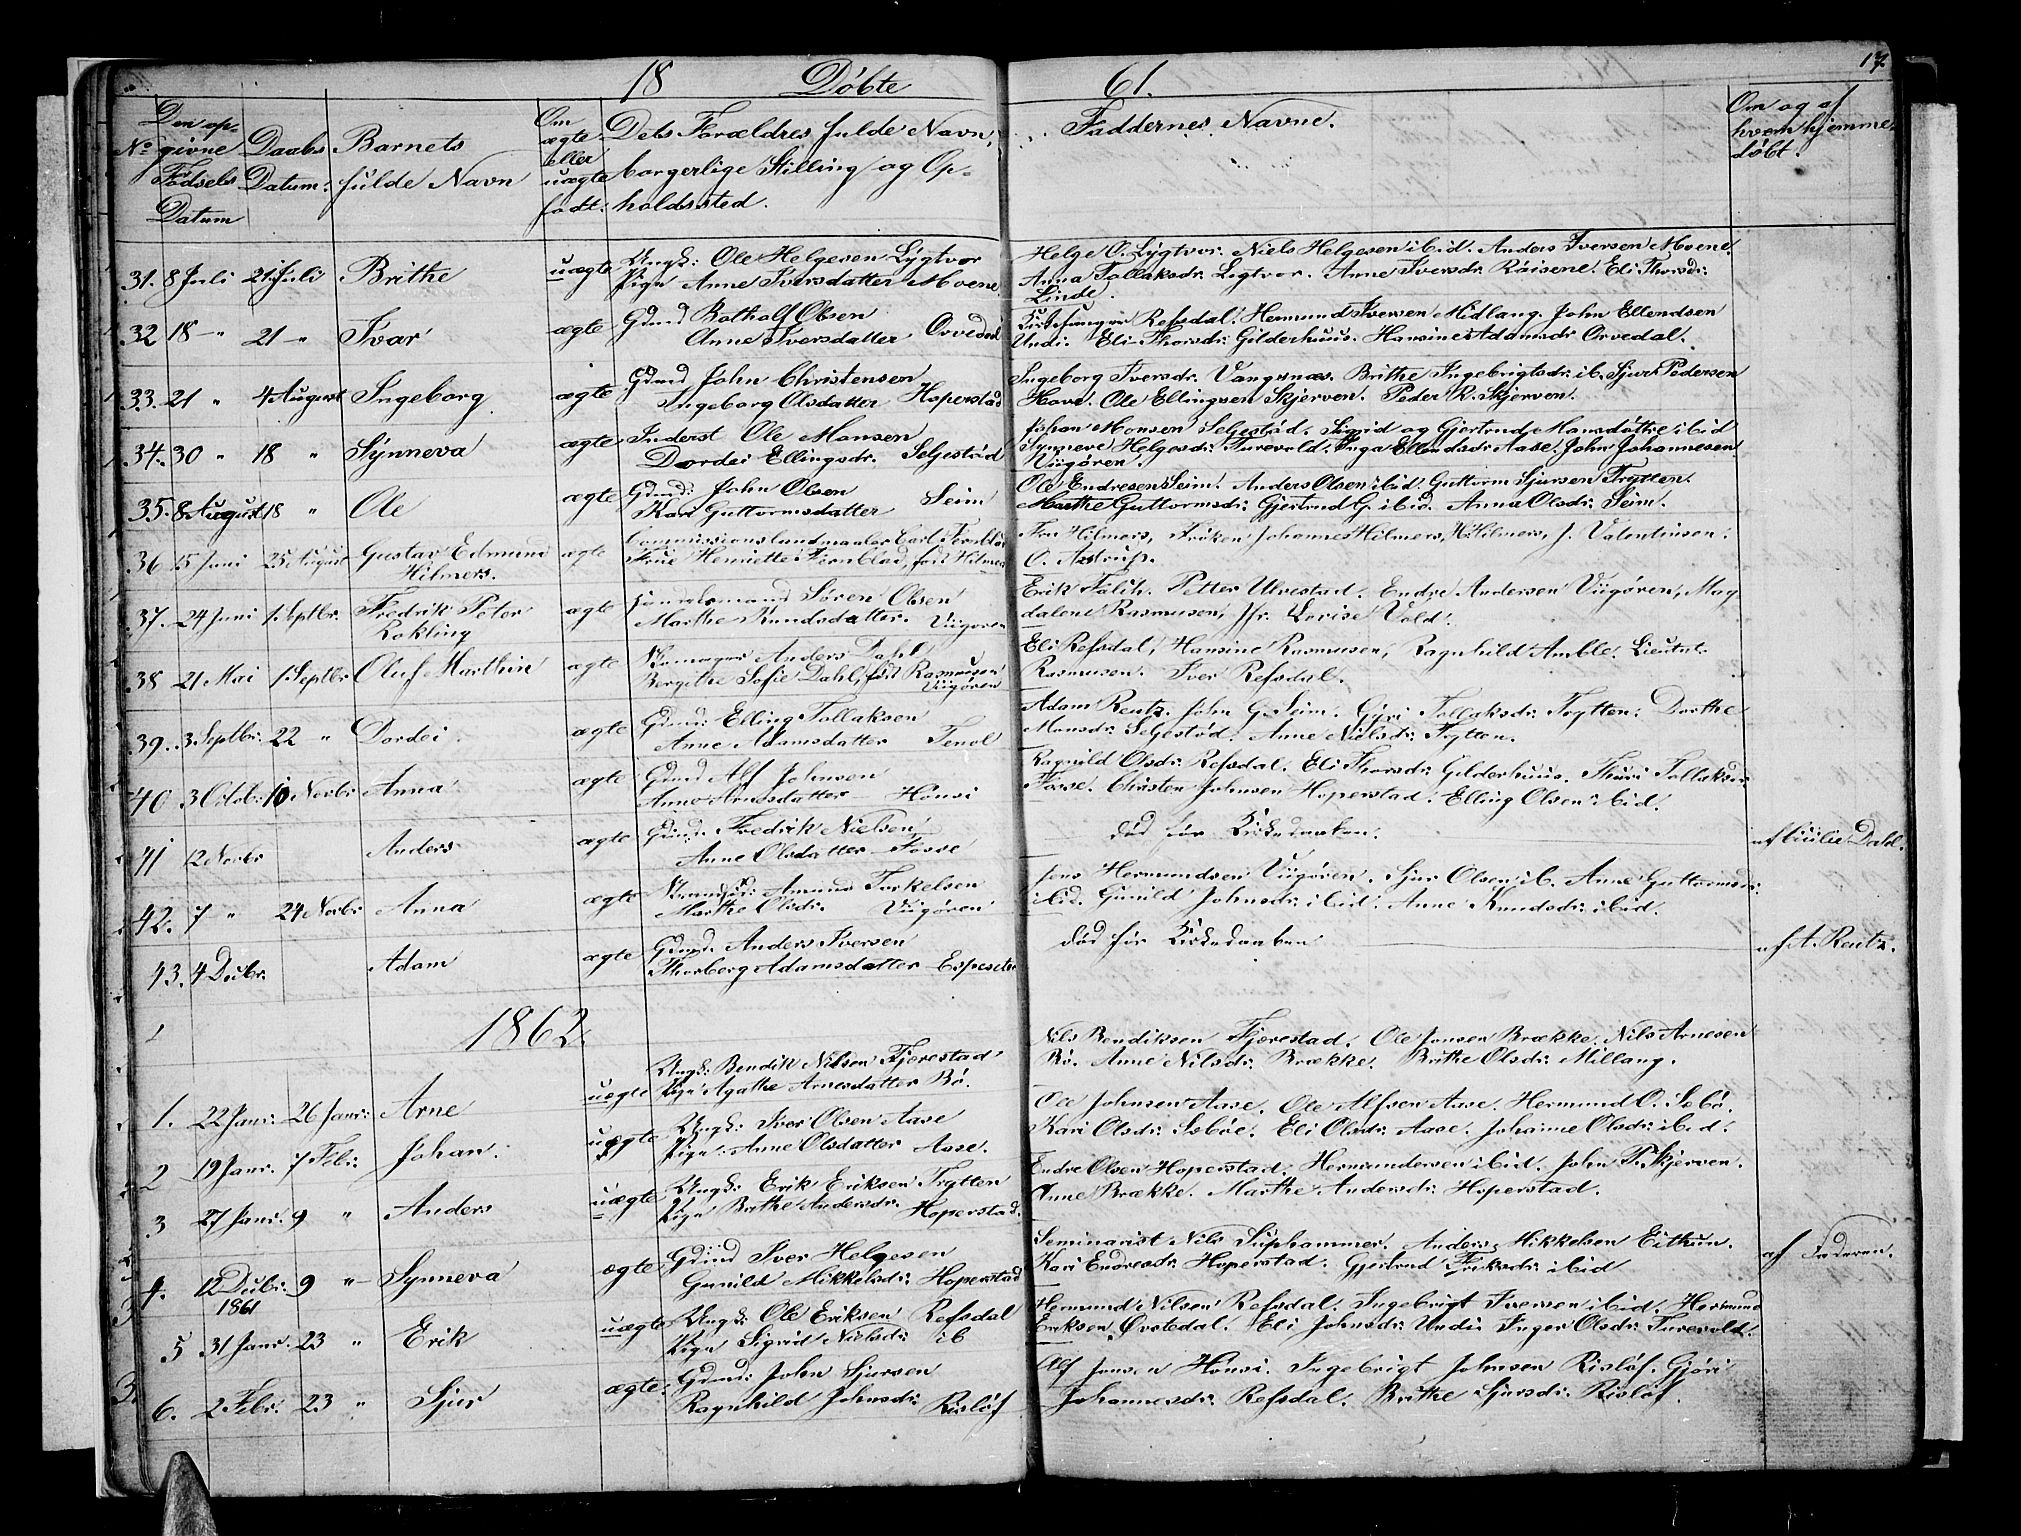 17.
18 Döbte 61.
Den op-
No givne Daabs Barnets
Födsels Datum: fulde Navn
Datum
Om
ægte
eller
uægte
født:
Dets Forældres fulde Navn,
borgerlige Stilling og Op-
holdssted.
Faddernes Navne.
Om og af
hvem hjemme-
døbt.
31. 8 Juli 21 Juli Brithe uægte Ungk: Ole Helgesen Lygtvor
Pige Anne Iversdatter Moene
Helge O. Lygtvor. Niels Helgesen ibid. Anders Iversen Moene.
Anna Tollaksdr: Ligtvor. Anne Iversdr: Röisene. Eli Thorsdr:
Linde.
32 18 - " 21 - " Ivar ægte Gdmd Botholf Olsen
Anne Iversdatter Orvedal
Kirkesanger Refsdal. Hermund Iversen Midlang. John Ellendsen
Undi. Eli Thorsdr: Gilderhuus. Hansine Adamsdr Orvedal.
33. 21 " 4 August Ingeborg ægte Gdmd John Christensen
Ingeborg Olsdatter Hoperstad
Ingeborg Iversdr. Vangsnæs. Brithe Ingebrigtsdr: ib. Sjur Pedersen
Hove. Ole Ellingsen Skjerven. Peder R. Skjerven.
34. 30 " 18 " Synneva ægte Inderst Ole Monsen
Dordei Ellingsdr. Seljestöd
Johan Monsen Seljestöd. Sigrid og Gjertrud Monsdöttre ibid
Synneve Helgesdr: Turevold. Inga Ellendsdr Aase. John Johannesen
Viigören.
35. 8 August 18 " Ole ægte Gdmd: John Olsen
Kari Guttormsdatter Seim
Ole Endresen Seim. Anders Olsen ibid. Guttorm Sjursen Trytten.
Marthe Guttormsdr: Gjertrud G. ibid. Anna Olsdr: Seim.
36 15 Juni 25 August Gustav Edmund
Hilmers. ægte Commissionslandmaaler Carl
Frue Henriette Fernblad, född Hilmers
Fru Hilmers, Fröken Johannes Hilmers, H. Hilmers, J. Valentinsen.
O. Astrup.
37. 24 Juni 1. Septbr. Fredrik Peter
Rokling ægte Handelsmand Sören Olsen
Marthe Knudsdatter. Viigören
Erik Falch. Petter Ulvestad. Endre Andersen Viigören, Mag
dalene Rasmusen, Jfr. Lovise Vold.
38 21 Mai 1. Septbr Oluf Marthin ægte Anders Dahl
Bergithe Sofie Dahl, född Rasmusen
Viigören
Eli Refsdal, Hansine Rasmusen, Ragnhild Amble. Lieutnt.
Rasmusen. Iver Refsdal.
39. 3 Septbr. 22 " Dordei ægte Gdmd: Elling Tollaksen
Anne Adamsdatter Tenol
Adam Reutz. John G. Seim. Gyri Tollaksdr: Trytten: Dorthe
Monsdr: Seljestöd. Anne Nielsdr: Trytten.
40 3 Octbr: 10 Novbr Anna ægte Gdmd Alf Johnsen
Anne Arnesdatter Hönsi
Ragnild Olsdr: Refsdal. Eli Thorsdr: Gilderhuus. Thuri Tollaksdr:
Fosse. Christen Johnsen Hoperstad. Elling Olsen ibid.
41 12 Novbr Anders ægte Gdmd. Fredrik Nielsen
Anne Olsdatter Fosse
död för Kirkedaaben.
af Cicilie Dahl.
42. 7 " 24 Novbr Anna ægte Amund Torkelsen
Marthe Olsdr: Viigören
Jens Hermundsen Viigören. Sjur Olsen ib. Anne Guttormsdr:
ibid. Gunild Johnsdr: ibid. Anne Knudsdr: ibid.
43. 4 Decbr: Adam ægte Gdmd. Anders Iversen
Thorberg Adamsdatter Espeseter
död för Kirkedaaben
af A. Reutz.
1862.
1. 22 Janr: 26 Janr: Arne uægte Ungk: Bendik Nilsen Fjærestad
Pige Agathe Arnesdatter Bö.
Nils Bendiksen Fjærestad. Ole Jonsen Brække. Nils Arnesen
Bö. Anne Nilsdr: Brække. Brithe Olsdr: Millang.
2 19 Janr. 7 Febr. Johan. uægte Ungk: Iver Olsen Aase
Pige: Anne Olsdatter Aase.
Ole Johnsen Aase. Ole Alfsen Aase. Hermund O. Sæbö.
Kari Olsdr: Sæböe. Eli Olsdr: Aase. Johanne Olsdr: ibid.
3 27 Janr. 9 " Anders uægte Ungk: Erik Eriksen Trytten
Pige Brithe Andersdr: Hoperstad.
Endre Olsen Hoperstad. Hermundersen ibid. John P. Skjerven.
Anne Brække. Marthe Andersdr: Hoperstad.
4. 12 Decbr: 9 " Synneva ægte Gdmd Iver Helgesen
1861
Gunild Mikkelsdr: Hoperstad
Seminarist Nils Süphammer. Anders Mikkelsen Eithun.
Kari Endresdr: Hoperstad. Gjertrud Eriksdr: ibid
af Faderen.
5 31 Janr. 23 " Erik uægte Ungk: Ole Eriksen Refsdal
Pige Sigrid Nielsdr: ib
Hermund Nilsen Refsdal. Ingebrigt Iversen ibid. Hermund
Eriksen Övstedal. Eli Johnsdr: Undi. Inger Olsdr: Turevold.
6. 2 Febr: 23 " Sjur ægte. Gdmd: John Sjursen
Ragnhild Johnsdr: Rislöf
Alf Jonsen Hönsi. Ingebrigt Johnsen Rislöf. Gjöri
Johannesdr: Refsdal. Brithe Sjursdr: Rislöf.